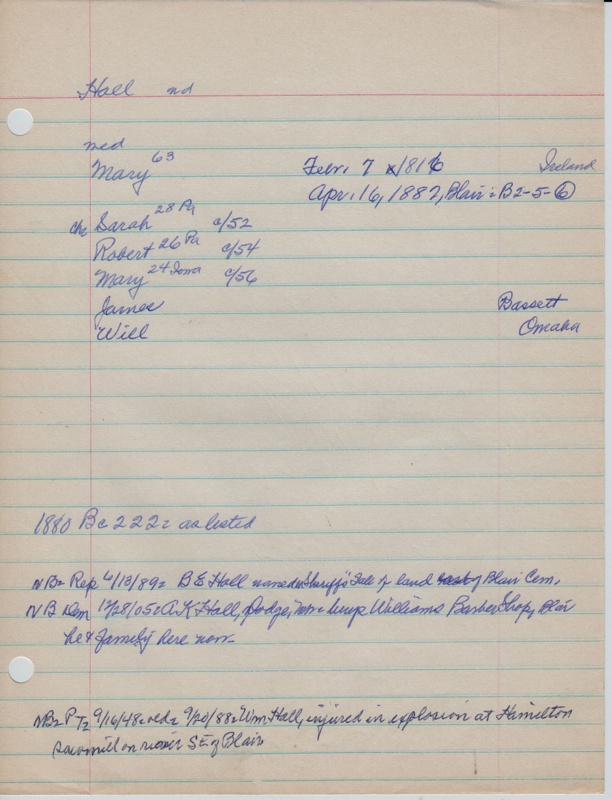 Hall nd
med
Mary 63 Febr. 7 1816 Ireland
Apr. 16, 1882, Blair = B2-5-6
Ch= Sarah 28 Pa c/52
Robert 26 Pa c/54
Mary 24 Iowa c/56
James Bassett
Will Omaha
1880 Bc 222 = as listed
NB= Rep 4/13/89 = B E Hall named in Sheriff's Sale of land Blair Cem.
NB Dem 12/28/05 = A.K. Hall, Dodge, Williams Barber Shop, Blair
he & family here now-
NB= PT= 9/16/48 = old = 9/20/88 = Wm Hall, injured in explosion at Hamilton
sawmill on river SE of Blair